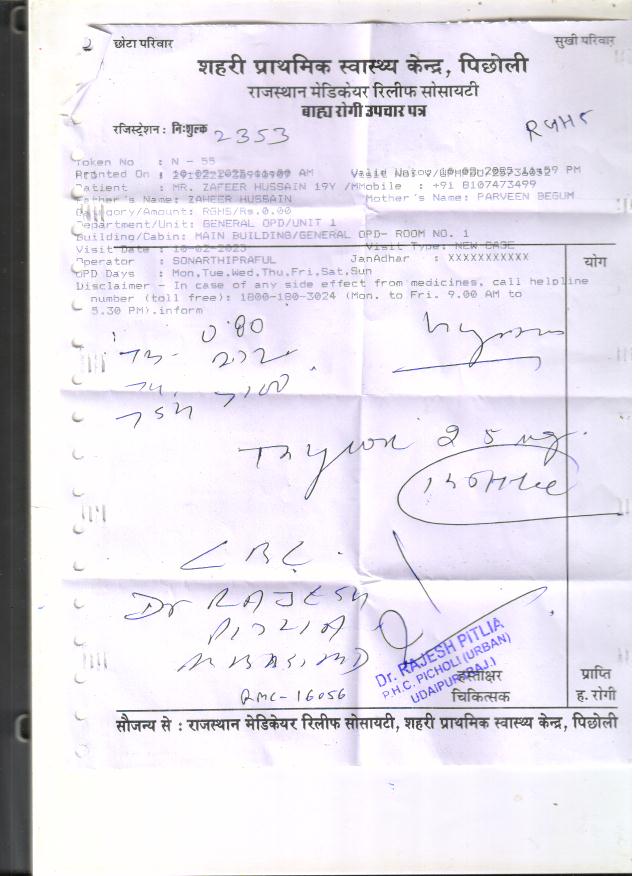 2 छोटा परिवार
सुखी परिवार
शहरी प्राथमिक स्वास्थ्य केन्द्र, पिछोली
राजस्थान मेडिकेयर रिलीफ सोसायटी
बाह्य रोगी उपचार पत्र
रजिस्ट्रेशन : निःशुल्क 2353
RGHS
Token No : N - 55
Printed On :
Patient : MR. ZAFEER HUSSAIN 19Y /M Mobile : +91 8107473499
Father's Name: ZAHEER HUSSAIN Mother's Name: PARVEEN BEGUM
Category/Amount: RGHS/Rs.0.00
Department/Unit: GENERAL OPD/UNIT 1
Building/Cabin: MAIN BUILDING/GENERAL OPD- ROOM NO. 1
Visit Date : 10-02-2025 Visit Type: NEW CASE
Operator : SONARTHIPRAFUL JanAadhar : XXXXXXXXXXX
योग
OPD Days : Mon,Tue,Wed,Thu,Fri,Sat,Sun
Disclaimer - In case of any side effect from medicines, call helpline
number (toll free): 1800-180-3024 (Mon. to Fri. 9.00 AM to
5.30 PM).inform
0.80
TSH 7100
25 mg
CBC
Dr RAJESH
PITLIA
MBBS, MD
RMC-16056
Dr. RAJESH PITLIA
P.H.C. PICHOLI (URBAN)
UDAIPUR (RAJ.)
हस्ताक्षर
चिकित्सक
प्राप्ति
ह. रोगी
सौजन्य से : राजस्थान मेडिकेयर रिलीफ सोसायटी, शहरी प्राथमिक स्वास्थ्य केन्द्र, पिछोली